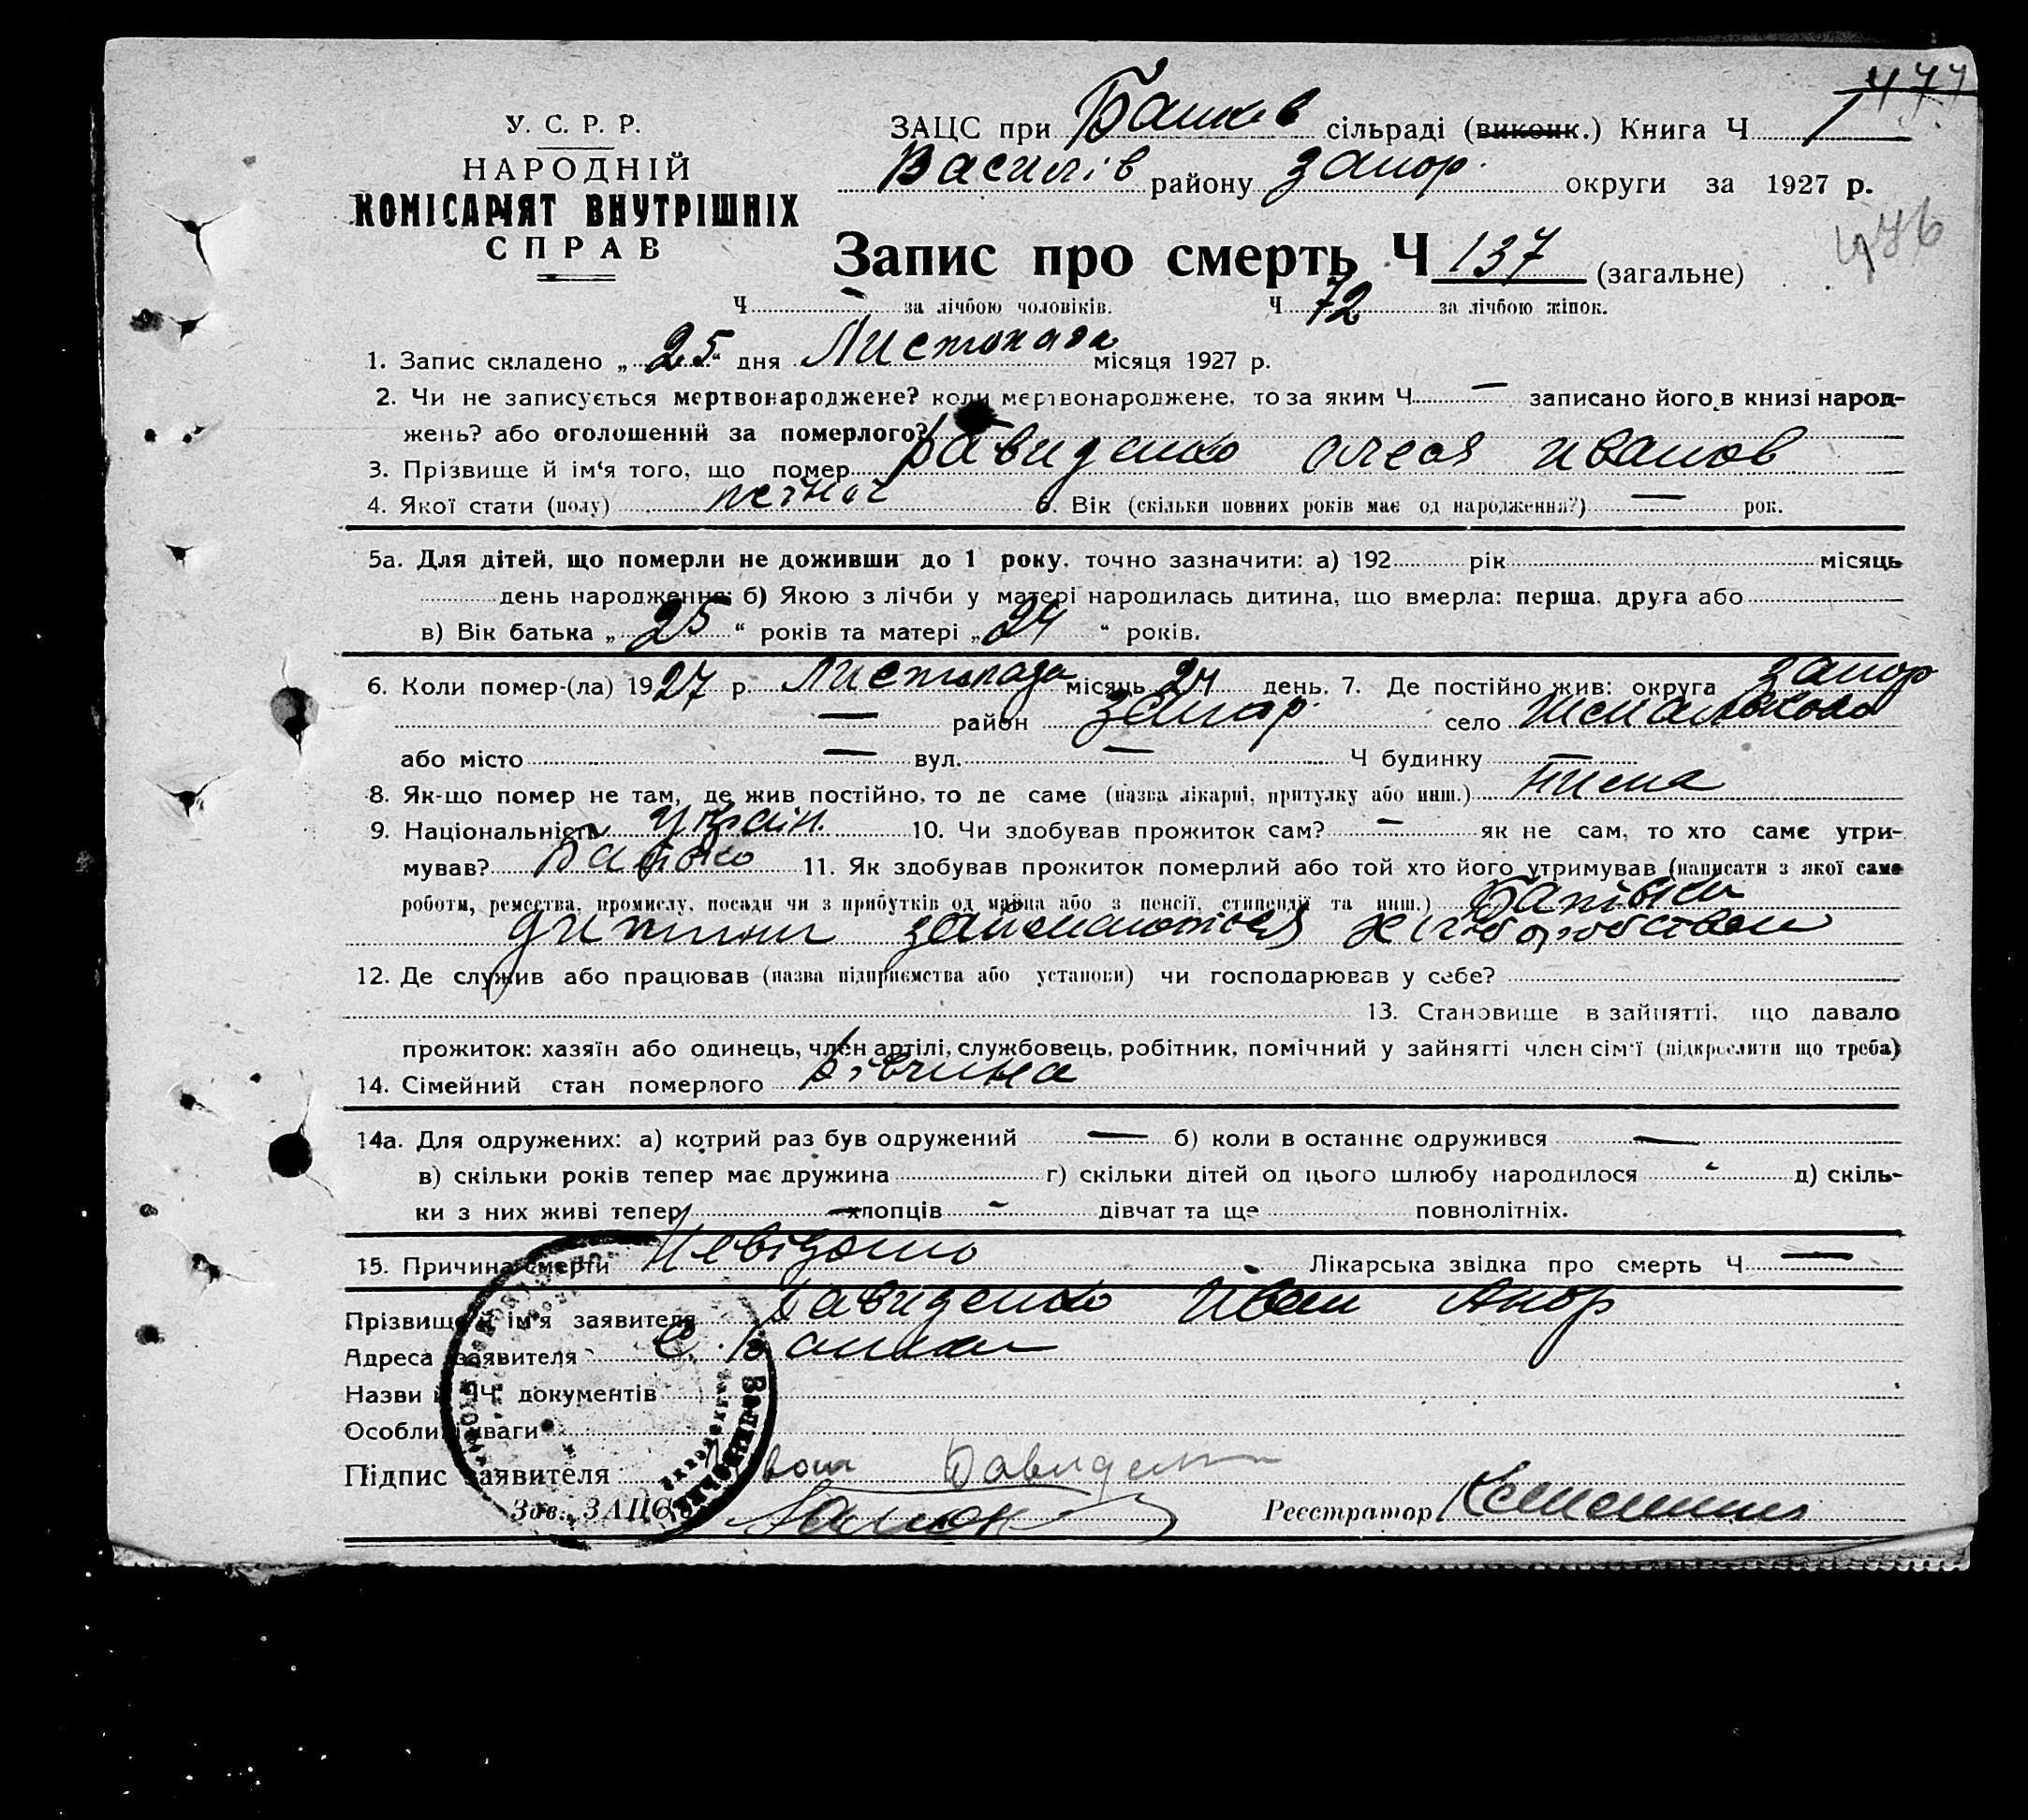 477
У. С. Р. Р.
НАРОДНІЙ
КОМІСАРІЯТ ВНУТРІШНІХ
СПРАВ
ЗАЦС при Балков сільраді (виконк.) Книга Ч 1
Василів району Запор. округи за 1927 р.
Запис про смерть Ч 137 (загальне)
Ч — за лічбою чоловіків. Ч 72 за лічбою жінок.
1. Запис складено „25“ дня Листопада місяця 1927 р.
2. Чи не записується мертвонароджене? коли мертвонароджене, то за яким Ч — записано його в книзі народ-
жень? або оголошений за померлого?
3. Прізвище й ім‘я того, що помер Давиденко Олеся Иванов
4. Якої стати (полу) 6. Вік (скільки повних років має од народження?) — рок.
5а. Для дітей, що померли не доживши до 1 року, точно зазначити: а) 192 рік місяць
день народження; б) Якою з лічби у матері народилась дитина, що вмерла: перша, друга або
в) Вік батька „25“ років та матері „24“ років.
6. Коли помер-(ла) 1927 р. Листопада місяць 24 день. 7. Де постійно жив: округа Запор
— район Запор. село
або місто — вул. — Ч будинку —
8. Як-що помер не там, де жив постійно, то де саме (назва лікарні, притулку або инш.)
9. Національність Україн. 10. Чи здобував прожиток сам? — як не сам, то хто саме утри-
мував? Батько 11. Як здобував прожиток померлий або той хто його утримував (написати з якої саме
роботи, ремества, промислу, посади чи з прибутків од майна або з пенсії, стипендії та инш.) Батьки
дитини займаються хліборобством
12. Де служив або працював (назва підприємства або установи) чи господарював у себе?
13. Становище в зайнятті, що давало
прожиток: хазяїн або одинець, член артілі, службовець, робітник, помічний у зайнятті член сім‘ї (підкреслити що треба)
14. Сімейний стан померлого Дівчина
14а. Для одружених: а) котрий раз був одружений — б) коли в останнє одружився —
в) скільки років тепер має дружина г) скільки дітей од цього шлюбу народилося - д) скіль-
ки з них живі тепер — хлопців - дівчат та ще повнолітніх.
15. Причина смерти Невідомо Лікарська звідка про смерть Ч —
Прізвище й ім‘я заявителя Давиденко Иван
Адреса заявителя с. Балки
Назви й Ч документів
Особливі уваги
Підпис заявителя Давиденко
Зав. ЗАЦС Реєстратор